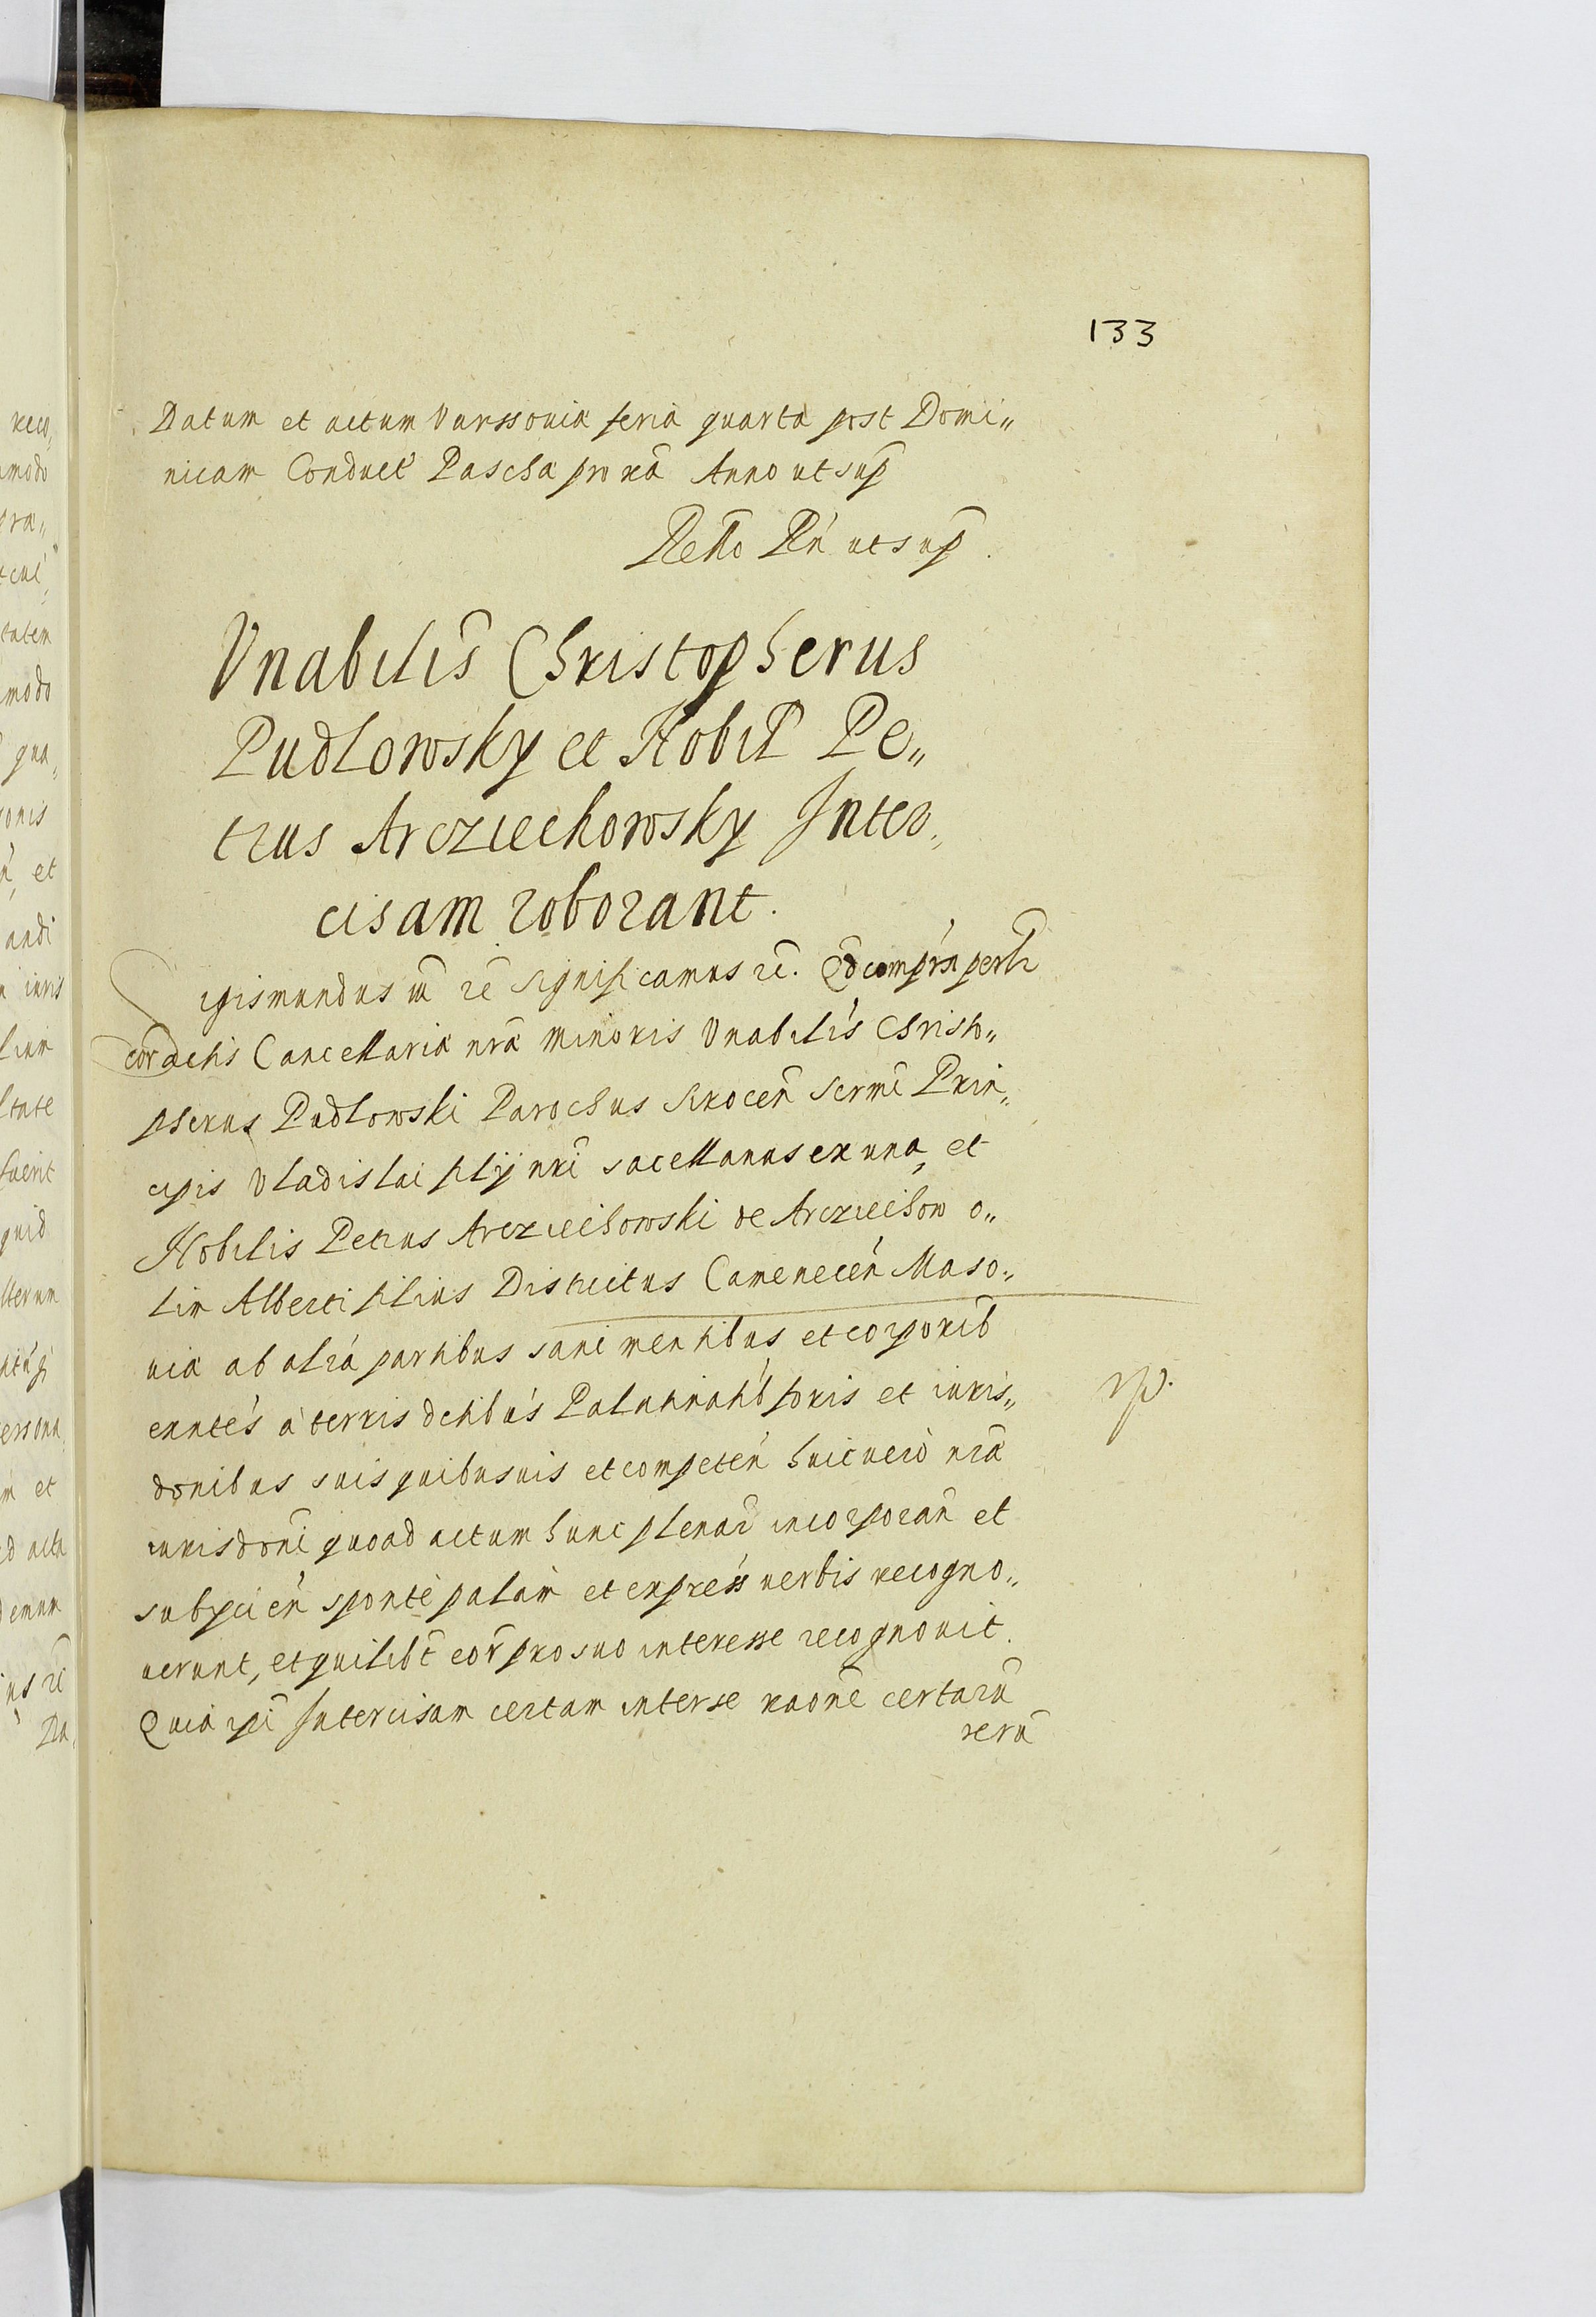 133
Datum et actum Varssouiæ feria quarta post Domi„
nicam Conduct́ Paschæ proxã Anno ut sup̃
Rell̃o Rń ut sup̃.
Vnabilis̃ Christopherus
Pudlowsky et Nobil̃ Pe„
trus Arcziechowsky Inter„
cisam roborant.
Sigismundus iiĩ rẽ significamus rẽ. Qd̃ com pŕn perlr̃
cor̃ actis Cancellariæ nr̃æ minoris Vnabilís Christo„
pherus Pudlowski Parochus Serocen̄ Sermĩ Prin„
cipis Vladislai filij nr̃i sacellanus ex una, et
Nobilis Petrus Arcziechowski de Arcziechow o„
lim Alberti filius Districtus Camenecen̄ Maso„
uiæ ab alrá partibus sani mentibus et corporib̃
exnteś à terris dctibuś Palatinatib́ foris et iuris„
donibus suis quibusuis et competeń huic uerò nr̃æ
iurisdoni quoad actum hunc plenar̃ incorporan̄ et
subijcień spontè palam et express̃ uerbis recogno„
uerunt, et quilibt̃ eor̃ pro suo interesse recognouit.
Quia ipi Intercisam certam inter se raone certarũ
rerũ